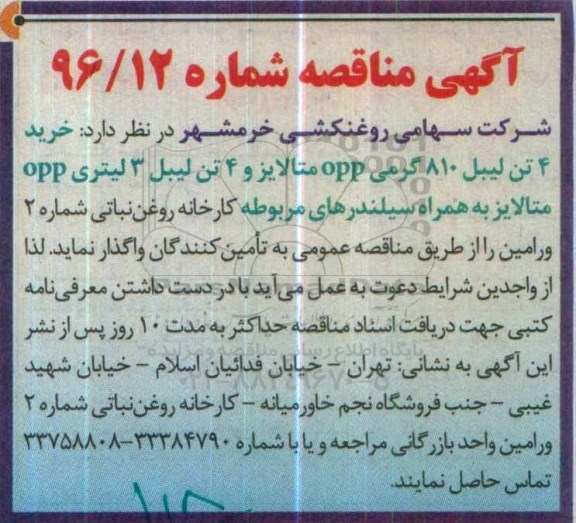 آگهی مناقصه شماره ۹۶/۱۲
شرکت سهامی روغنکشی خرمشهر در نظر دارد: خرید
۴ تن لیبل ۸۱۰ گرمی opp متالایز و ۴ تن لیبل ۳ لیتری opp
متالایز به همراه سیلندرهای مربوطه کارخانه روغن‌نباتی شماره ۲
ورامین را از طریق مناقصه عمومی به تأمین‌کنندگان واگذار نماید. لذا
از واجدین شرایط دعوت به عمل می‌آید با در دست داشتن معرفی‌نامه
کتبی جهت دریافت اسناد مناقصه حداکثر به مدت ۱۰ روز پس از نشر
این آگهی به نشانی: تهران – خیابان فدائیان اسلام – خیابان شهید
غیبی – جنب فروشگاه نجم خاورمیانه – کارخانه روغن‌نباتی شماره ۲
ورامین واحد بازرگانی مراجعه و یا با شماره ۳۳۳۸۴۷۹۰–۳۳۷۵۸۸۰۸
تماس حاصل نمایند.